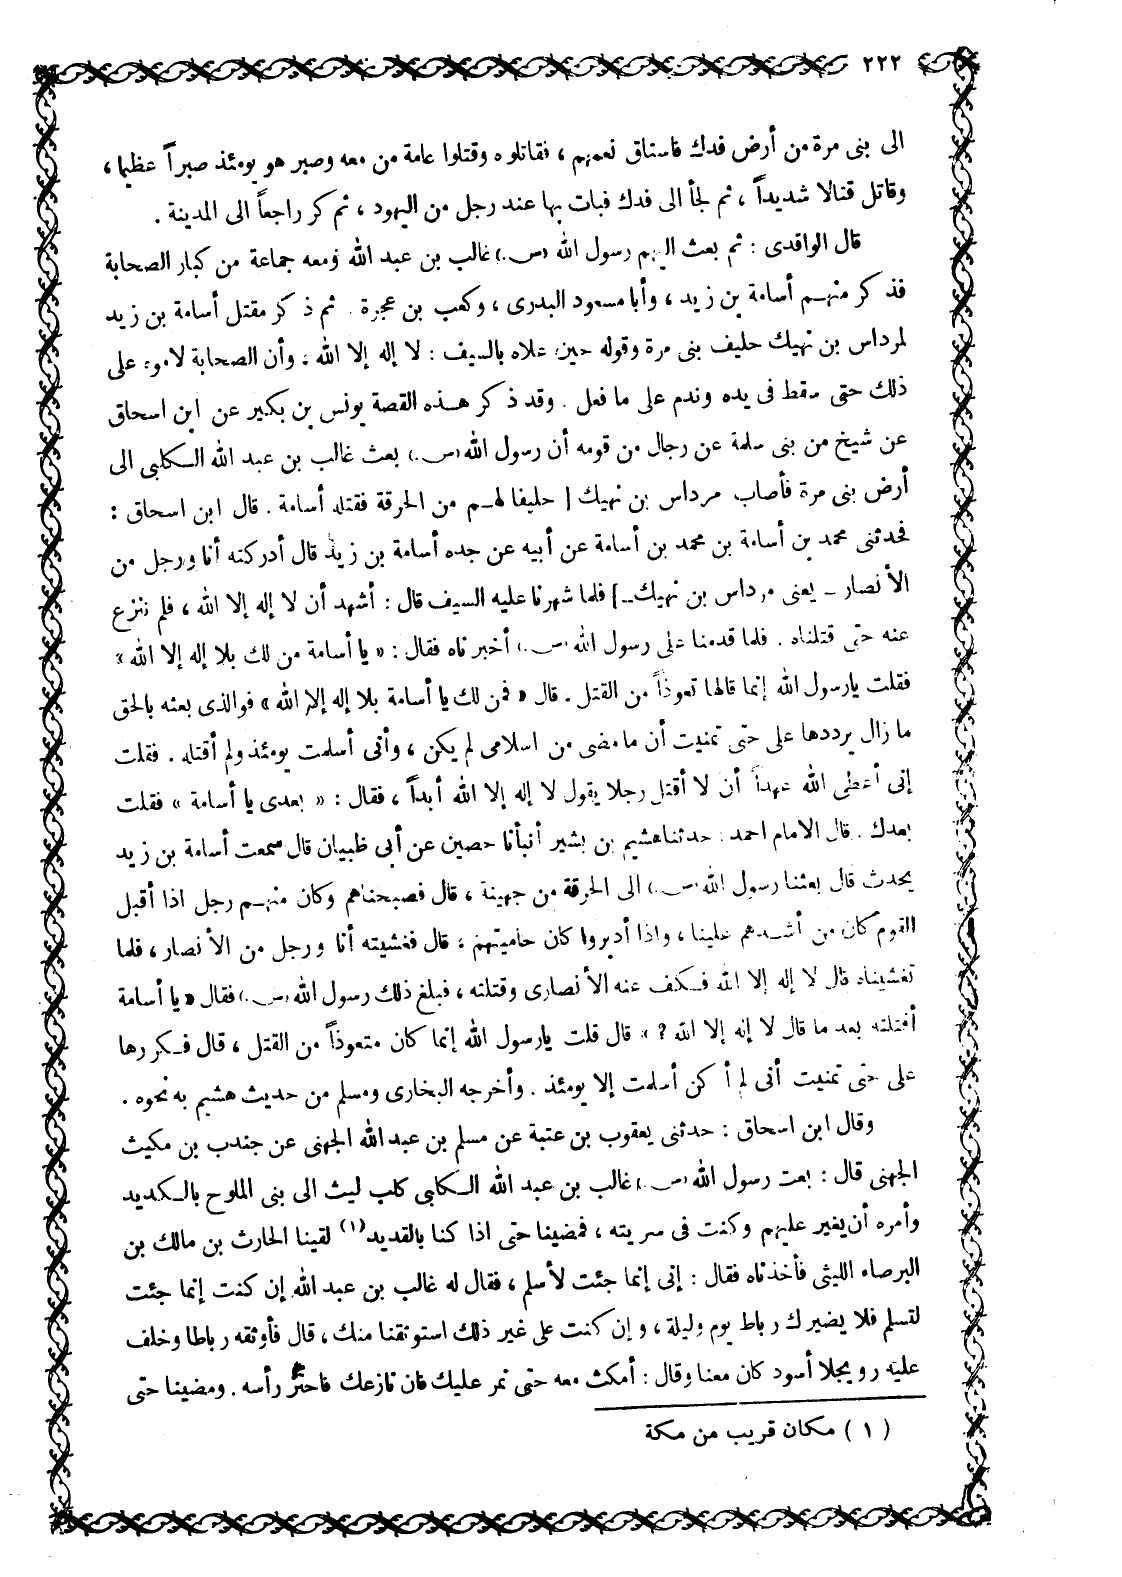 ٢٢٢
الى بنى مرة من أرض فدك فاستاق نعمهم ، فقاتلوه وقتلوا عامة من معه وصبر هو يومئذ صبراً عظيما ،
وقاتل قتالا شديداً ، ثم لجأ الى فدك فبات بها عند رجل من اليهود ، ثم كر راجعاً الى المدينة .
قال الواقدى : ثم بعث اليهم رسول الله (س.) غالب بن عبد الله ومعه جماعة من كبار الصحابة
فذكر منهم أسامة بن زيد ، وأبا مسعود البدرى ، وكعب بن عجرة . ثم ذكر مقتل أسامة بن زيد
لمرداس بن نهيك حليف بنى مرة وقوله حين علاه بالسيف : لا إله إلا الله ، وأن الصحابة لاموه على
ذلك حتى سقط فى يده وندم على ما فعل . وقد ذكر هذه القصة يونس بن بكير عن ابن اسحاق
عن شيخ من بنى سلمة عن رجال من قومه أن رسول الله (س.) بعث غالب بن عبد الله الكلبى الى
أرض بنى مرة فأصاب مرداس بن نهيك [ حليفا لهم من الحرقة فقتله أسامة . قال ابن اسحاق :
فحدثنى محمد بن أسامة بن محمد بن أسامة عن أبيه عن جده أسامة بن زيد قال أدركته أنا ورجل من
الأنصار ـ يعنى مرداس بن نهيك ـ ] فلما شهرنا عليه السيف قال : أشهد أن لا إله إلا الله ، فلم ننزع
عنه حتى قتلناه . فلما قدمنا على رسول الله (س.) أخبرناه فقال : « يا أسامة من لك بلا إله إلا الله »
فقلت يارسول الله إنما قالها تعوذاً من القتل . قال « فمن لك يا أسامة بلا إله إلا الله » فوالذى بعثه بالحق
ما زال يرددها على حتى تمنيت أن ما مضى من اسلامى لم يكن ، وأنى أسلمت يومئذ ولم أقتله . فقلت
إنى أعطى الله عهداً أن لا أقتل رجلا يقول لا إله إلا الله أبداً ، فقال : « بعدى يا أسامة » فقلت
بعدك . قال الامام احمد : حدثنا هشيم بن بشير أنبأنا حصين عن أبى ظبيان قال سمعت أسامة بن زيد
يحدث قال بعثنا رسول الله (س.) الى الحرقة من جهينة ، قال فصبحناهم وكان منهم رجل اذا أقبل
القوم كان من أشدهم علينا ، واذا أدبروا كان حاميتهم ، قال فغشيته أنا ورجل من الأنصار ، فلما
تغشيناه قال لا إله إلا الله فكف عنه الأنصارى وقتلته ، فبلغ ذلك رسول الله (س.) فقال « يا أسامة
أقتلته بعد ما قال لا إله إلا الله ؟ » قال قلت يارسول الله إنما كان متعوذاً من القتل ، قال فكررها
على حتى تمنيت أنى لم أكن أسلمت إلا يومئذ . وأخرجه البخارى ومسلم من حديث هشيم به نحوه .
وقال ابن اسحاق : حدثنى يعقوب بن عتبة عن مسلم بن عبد الله الجهنى عن جندب بن مكيث
الجهنى قال : بعث رسول الله (س.) غالب بن عبد الله الكلبى كلب ليث الى بنى الملوح بالكديد
وأمره أن يغير عليهم وكنت فى سريته ، فمضينا حتى اذا كنا بالقديد (١) لقينا الحارث بن مالك بن
البرصاء الليثى فأخذناه فقال : إنى إنما جئت لأسلم ، فقال له غالب بن عبد الله إن كنت إنما جئت
لتسلم فلا يضيرك رباط يوم وليلة ، وإن كنت على غير ذلك استوثقنا منك ، قال فأوثقه رباطا وخلف
عليه رويجلا أسود كان معنا وقال : أمكث معه حتى نمر عليك فان نازعك فاحتز رأسه . ومضينا حتى
( ١ ) مكان قريب من مكة